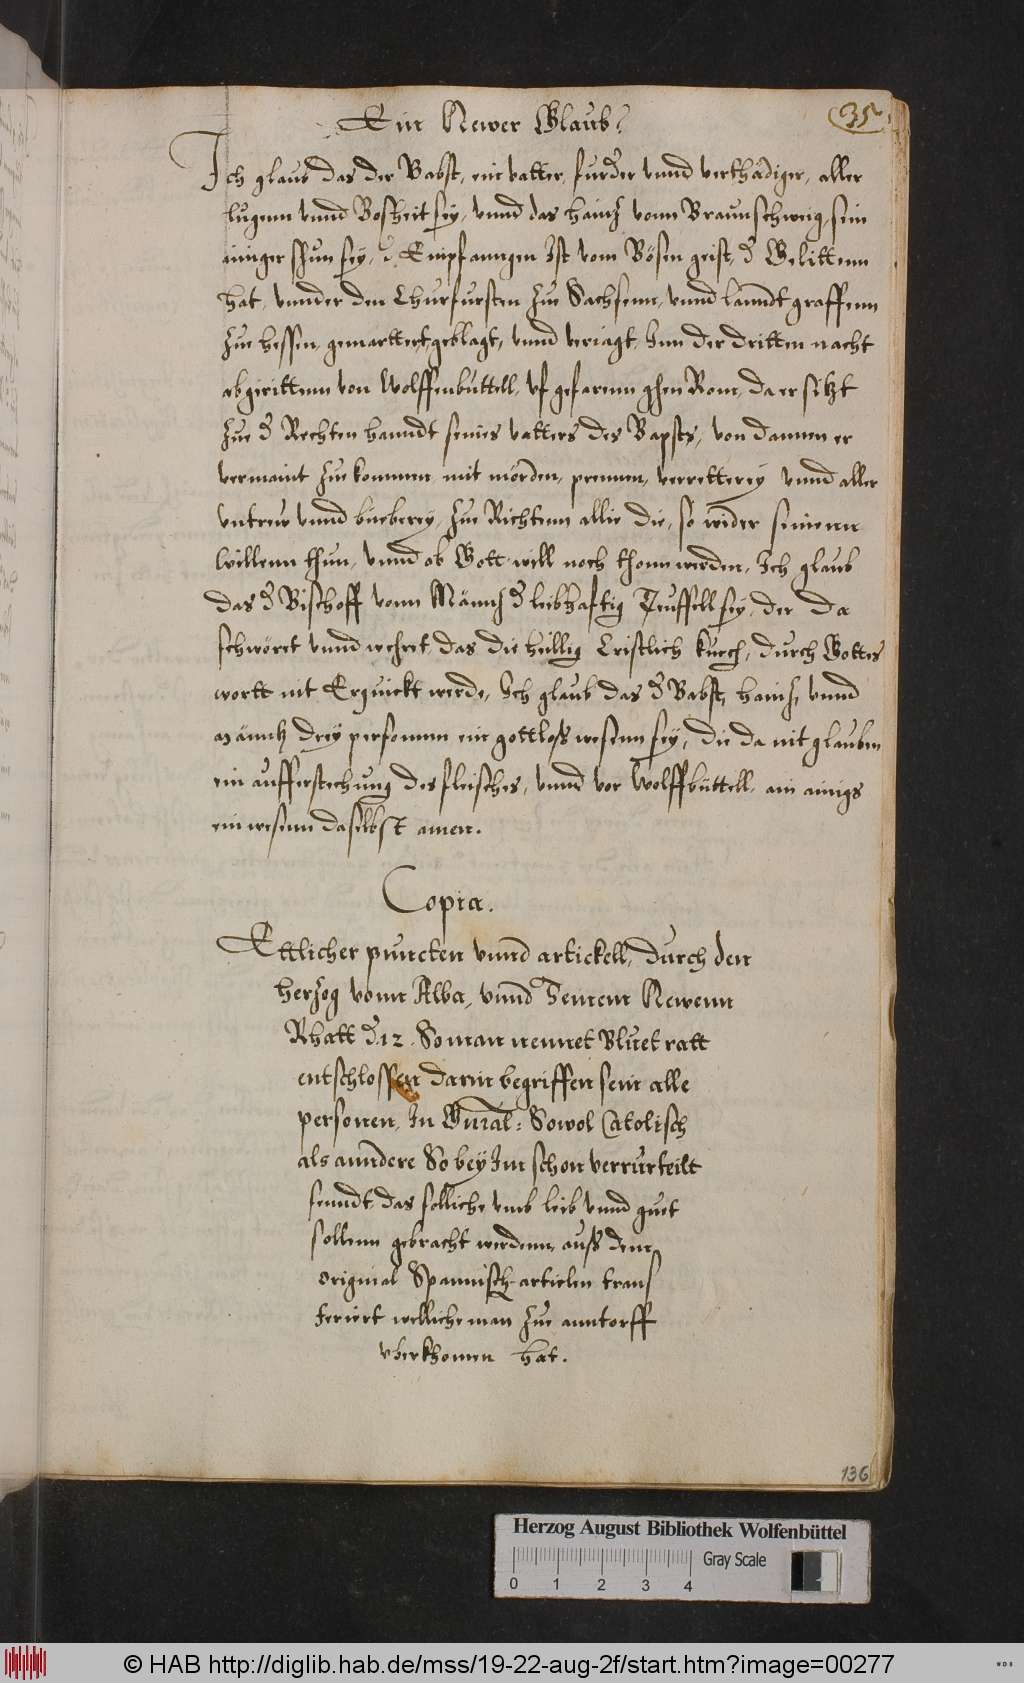 Ein Newer Glaub
35
Ich glaub das der Babst, ein vatter, furder vnnd verthädiger, aller
lugenn vnnd Bosheit sey, vnnd das hainz vonn Braunschweig, sein
ainiger shun sey, d Empfanngen Ist vom Bösen geist, d Gelittenn
hat, vnnder den Churfursten zue Sachsenn, vnnd lanndtgraffenn
zue hessen, gemarttert, geblagt, vnnd veriagt, Inn der dritten nacht
abgerittenn von Wolffenbuttell, vf gefarenn ghen Rom, da er sitzt
zue d Rechten hanndt seines vatters des Bapsts, von dannen er
vermaint zue kommen mit mörden, prennen, verretterey vnnd aller
vntrew vnnd bueberey, zue Richtenn alle die, so wider seinenn
willenn thun, vnnd ob Gott will noch thonn werden, Ich glaub
das d Bischoff vonn Mäintz d leibhafftig Teuffell sey, der da
schwöret vnnd wehret, das die heillig Cristlich kürch, durch Gottes
wortt nit Erquickt werde, Ich glaub das d Babst, hainz, vnnd
mäintz drey personnn ein gottloß wesenn sey, die da nit glauben
ein aufferstechung des fleisches, vnnd vor Wolffbüttell, ain ainigs
ein wesenn daselbst amen.
Copia.
Ettlicher puncten vnnd artickell, durch den
herzog vonn Alba, vnnd Seinem Newenn
Rhatt d 12. So man nennet Bluet ratt
entschlossen darin begriffen sein alle
personen, In General: Sowol Catolisch
als anndere So bey Im schon verrurteilt
senndt, das solliche vmb leib vnnd guet
sollenn gebracht werdenn, auß dem
original Spannisch artielen trans
feriert welliche man zue anntorff
vberkhomen hat.
136
Herzog August Bibliothek Wolfenbüttel
Gray Scale
0 1 2 3 4
© HAB http://diglib.hab.de/mss/19-22-aug-2f/start.htm?image=00277